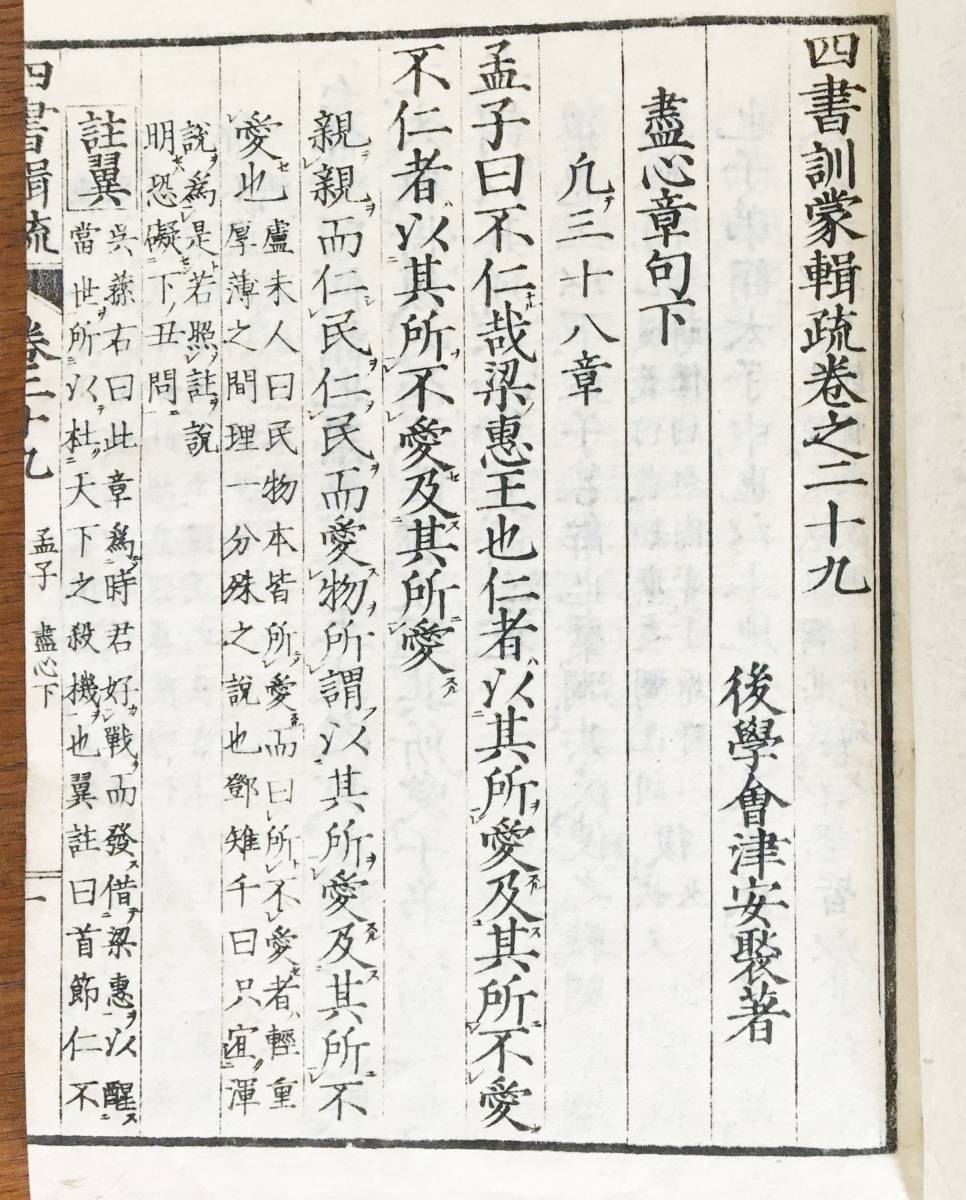 四書訓蒙輯疏卷之二十九
後學會津安褧著
盡心章句下
凢三十八章
孟子曰不仁哉梁惠王也仁者以其所愛及其所不愛
不仁者以其所不愛及其所愛
親親而仁民仁民而愛物所謂以其所愛及其所不
愛也
盧未人曰民物本皆所愛而曰所不愛者輕重
厚薄之間理一分殊之說也鄧雉千曰只宜渾
說爲是若照註說
明恐礙下丑問
註翼
吳蓀右曰此章爲時君好戰而發借梁惠以醒
當世所以杜天下之殺機也翼註曰首節仁不
四書輯疏
卷二十九
孟子 盡心下
一